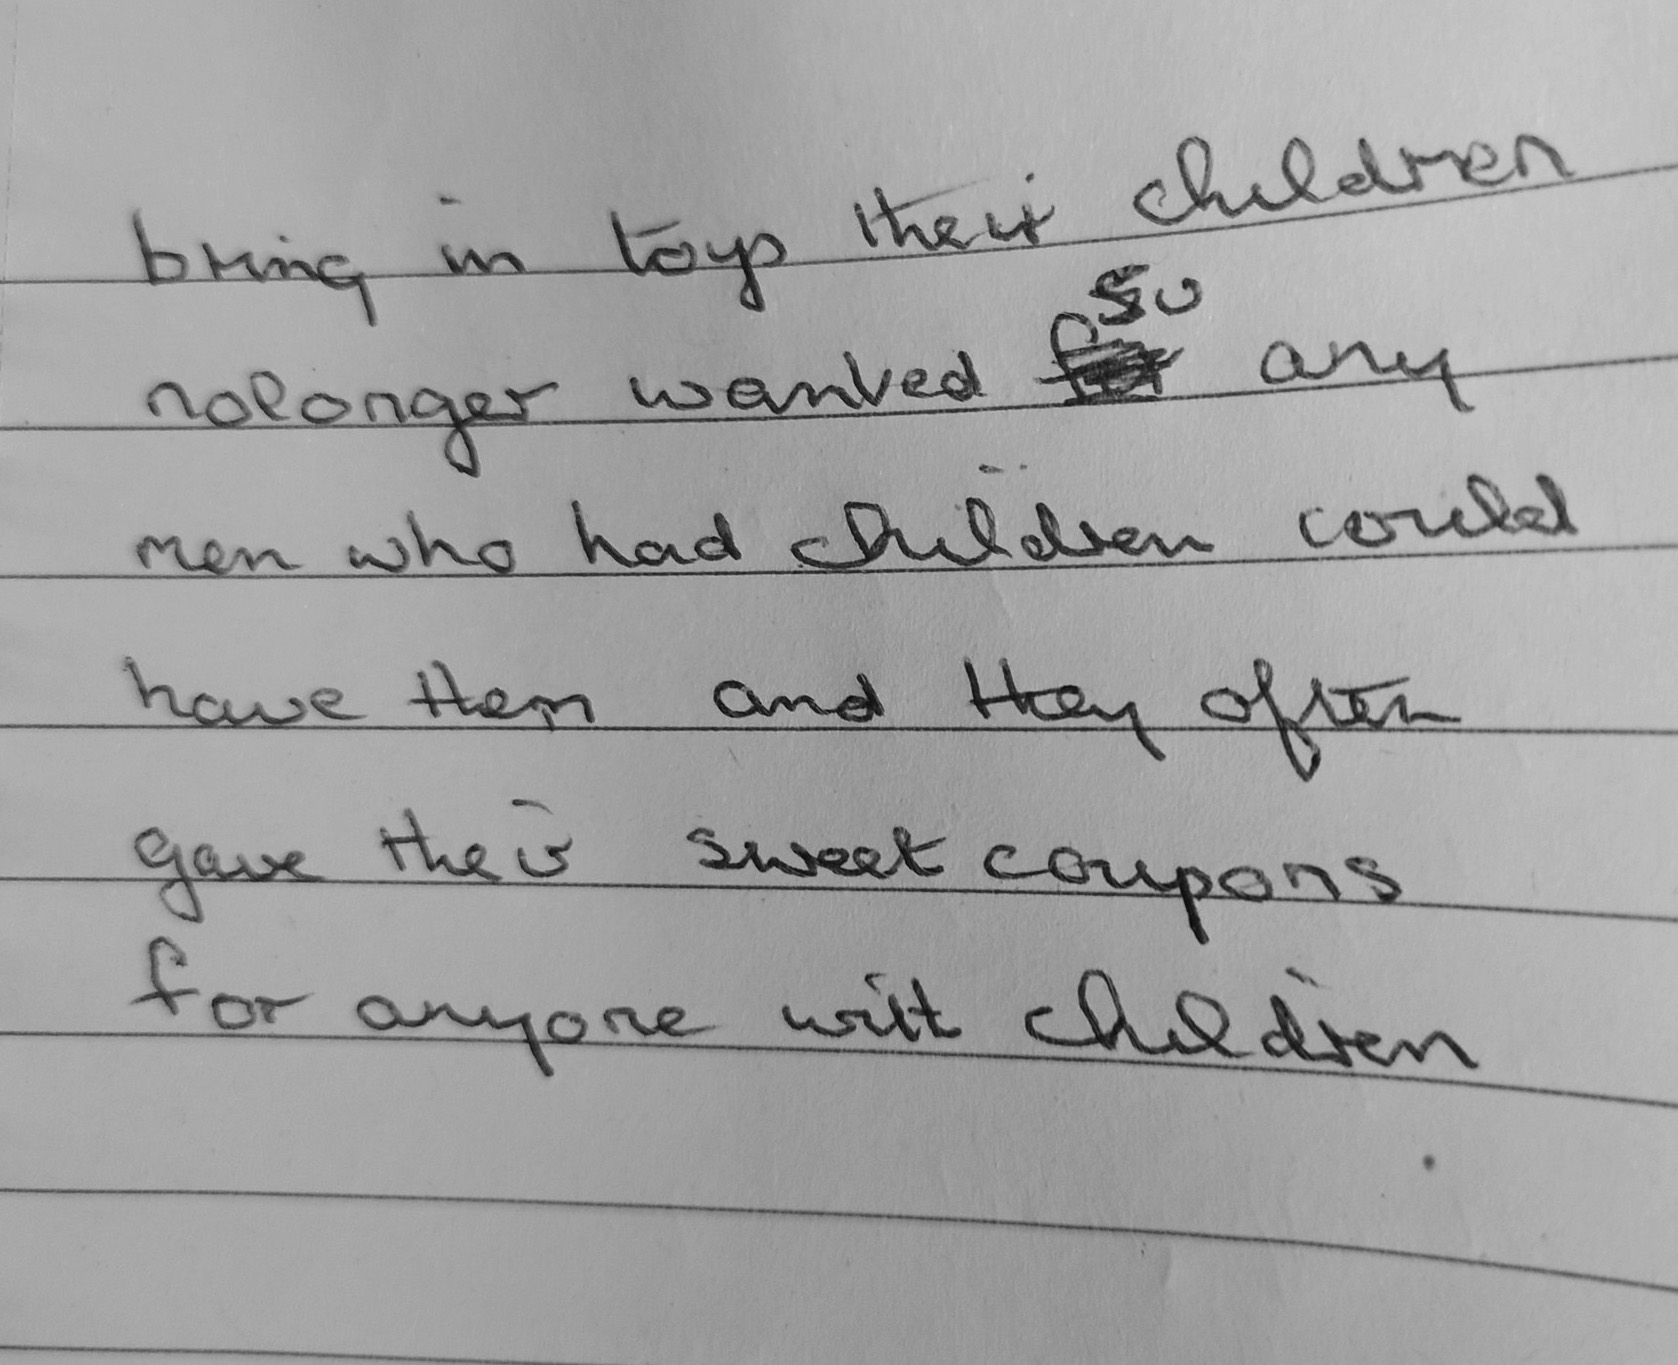 bring in toys their children
nolonger wanted so any
men who had children could
have them and they often
gave their sweet coupons
for anyone with children